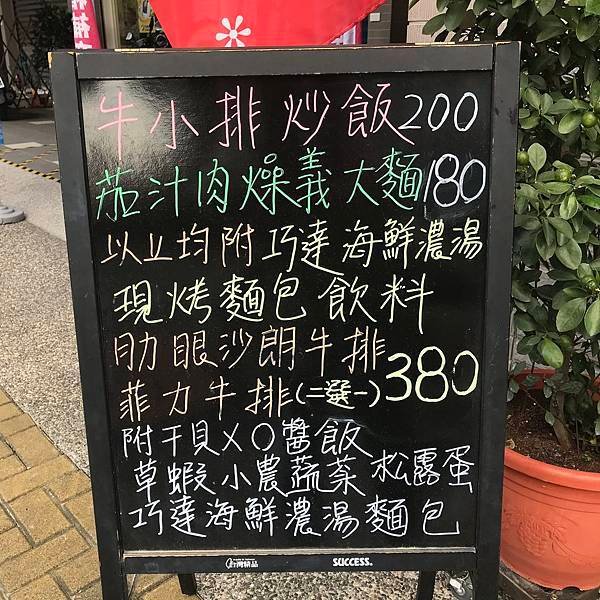 牛小排炒飯200
茄汁肉燥義大麵180
以上均附巧達海鮮濃湯
現烤麵包飲料
肋眼沙朗牛排
菲力牛排(二選一)380
附干貝XO醬飯
草蝦小農蔬菜松露蛋
巧達海鮮濃湯麵包
SUCCESS.